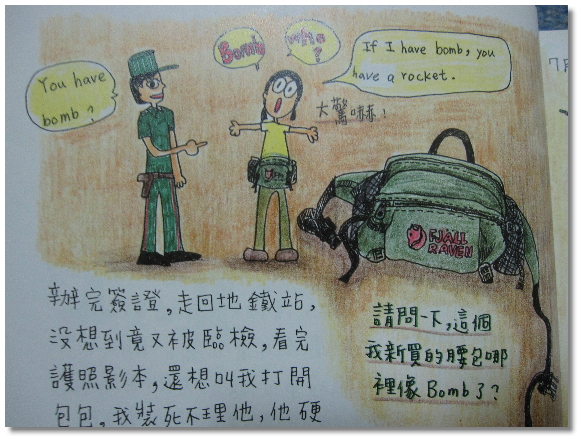 You have
bomb?
Bomb
who?
If I have bomb, you
have a rocket.
大驚嚇!
FJALL
RAVEN
辦完簽證,走回地鐵站,
沒想到竟又被臨檢,看完
護照影本,還想叫我打開
包包,我裝死不理他,他硬
請問一下,這個
我新買的腰包哪
裡像Bomb了?
7月